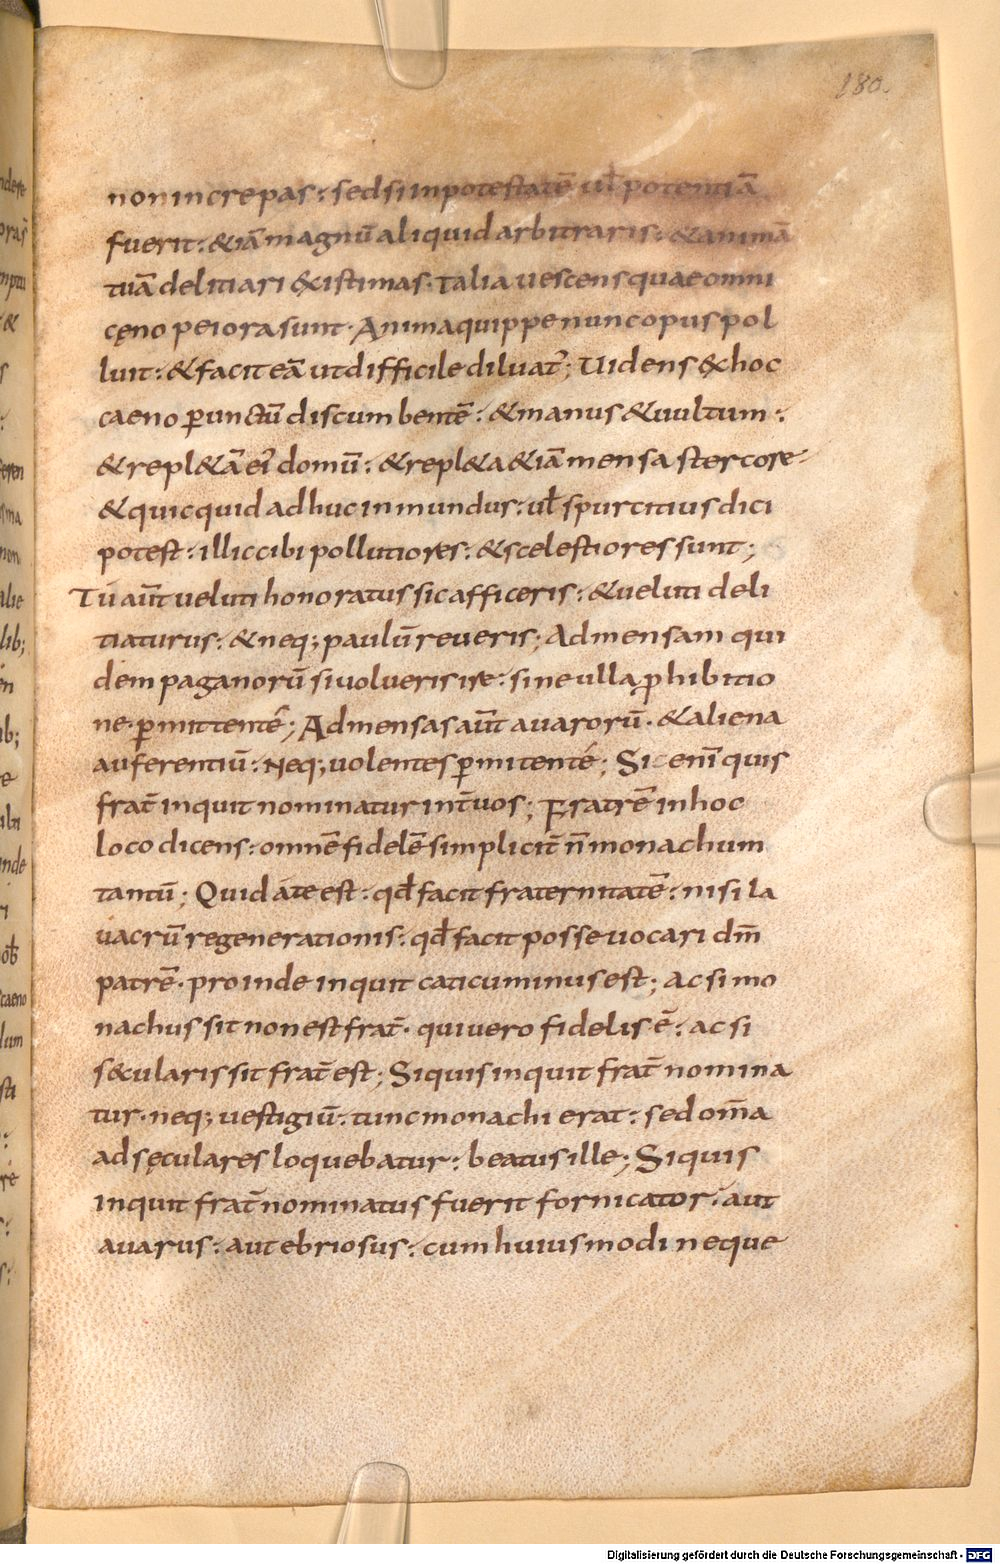 180.
non increpas: sed si in potestatē ul̄ potentiā
fuerit: &iā magnū aliquid arbitraris: &animā
tuā delitiari &istimas. Talia uescens quae omni
cęno peiora sunt. Anima quippe nunc opus pol
luit: &facit eā ut difficile diluat̄; Uidens &hoc
caeno ꝑunctū discumbentē: &manus &uultum:
&repl&ā ei' domū: &repl&a &iā mensa stercore
&quicquid adhuc inmundus: ul̄ spurcitius dici
potest: illi ccibi pollutiores: &scelestiores sunt;
Tu aūt ueluti honoratus sic afficeris: &ueluti deli
tiaturus: &neq; paulū reueris; Ad mensam qui
dem paganorū si uolueris ire: sine ulla ꝓhibitio
ne ꝑmittente; Ad mensas aūt auarorū. &aliena
auferentiū: Neq; uolentes ꝑmitente; Si enī quis
frat̄ inquit nominatur int̄ uos; Fratrē in hoc
loco dicens: omnē fidelē simplicit̄ n̄ monachum
tantū; Quid áte est: qd̄ facit fraternitatē: nisi la
uacrū regenerationis: qd̄ facit posse uocari dm̄
patrē. proinde inquit caticuminus est; ac si mo
nachus sit non est frat̄. qui uero fidelis ē: ac si
s&ularis sit frat̄ est; Siquis inquit frat̄ nomina
tur. neq; uestigiū: tunc monachi erat: sed om̄a
ad sęculares loquebatur: beatus ille; Siquis
inquit frat̄ nominatus fuerit fornicator: aut
auarus: aut ebriosus: cum huiusmodi neque
Digitalisierung gefördert durch die Deutsche Forschungsgemeinschaft - DFG